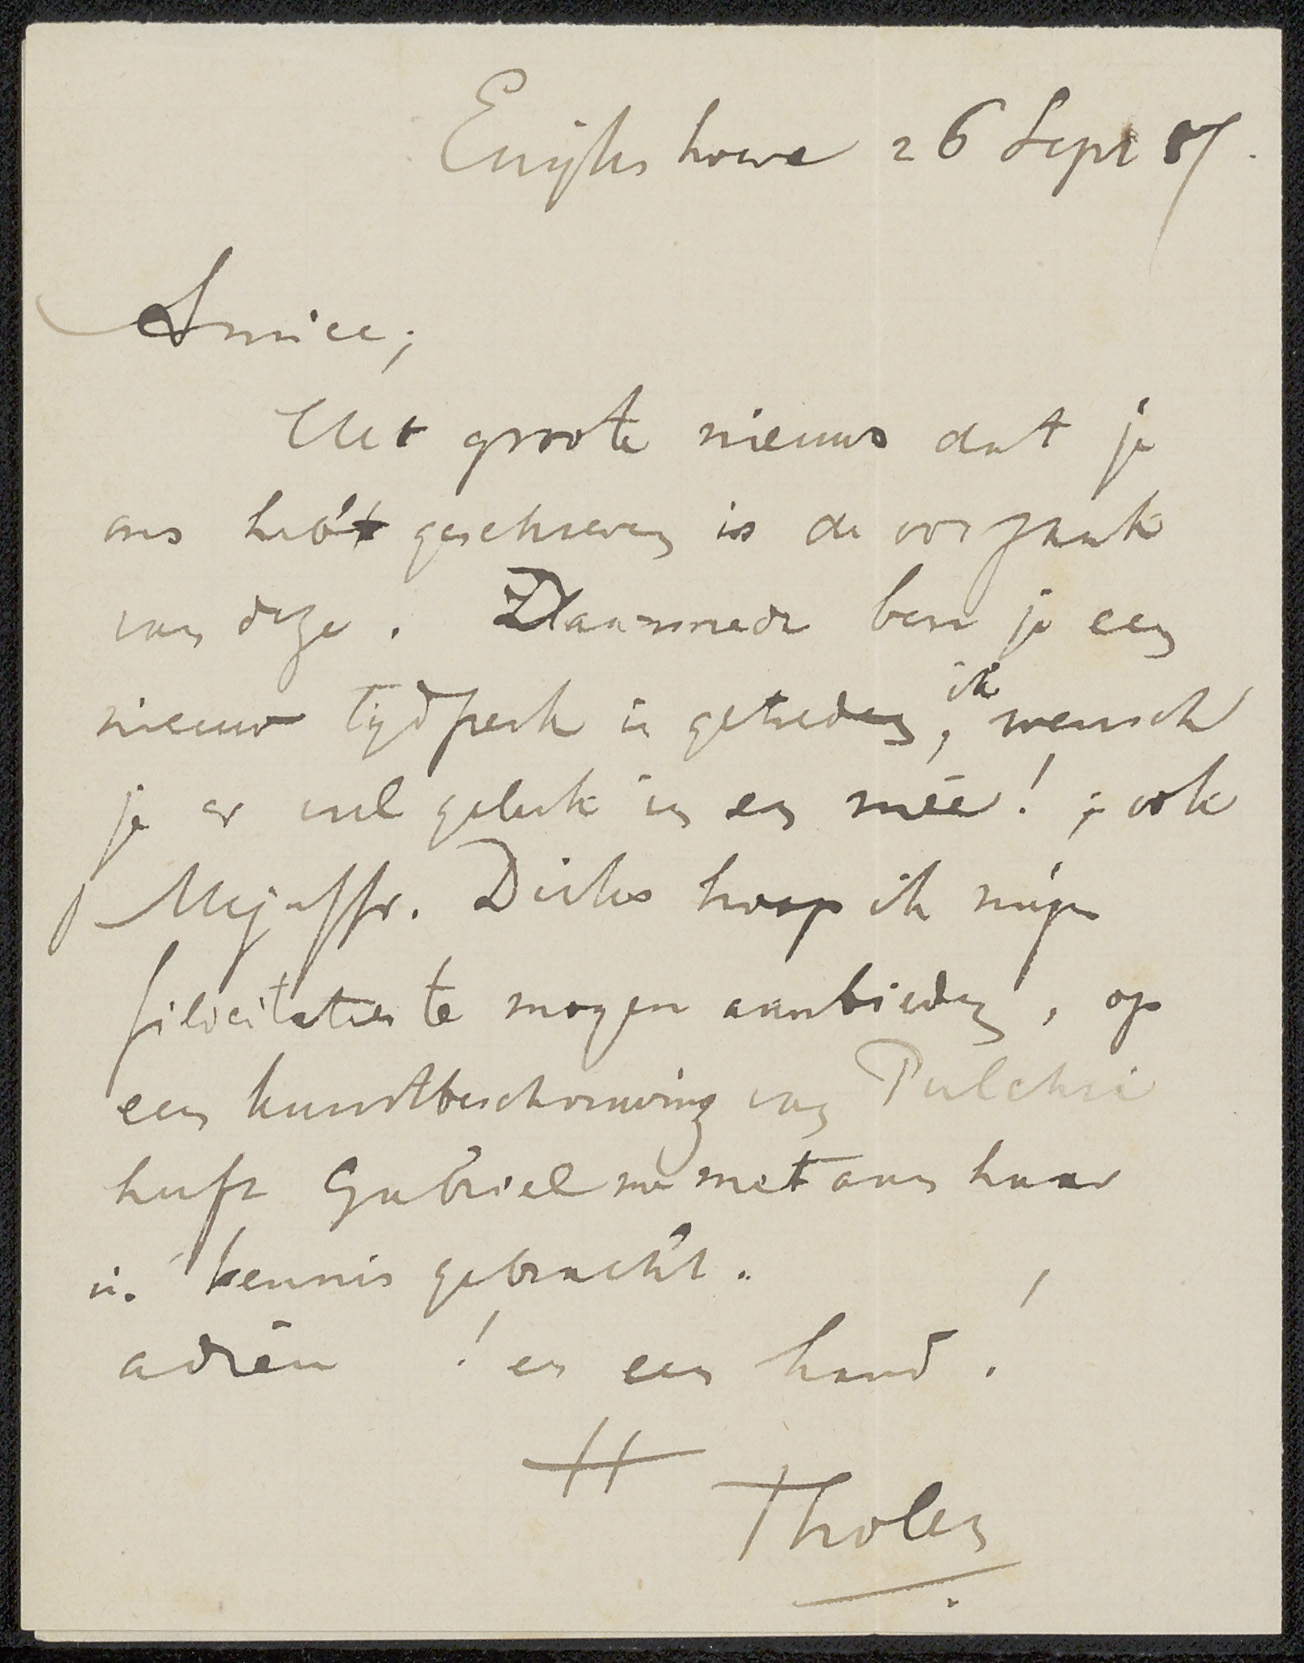 Ewijkshoeve 26 Sept 87.
Amice;
Het groote nieuws dat je
ons hebt geschreven is de oorzaak
van deze. Daarmede ben je een
nieuw tijdperk in getreden, ik wensch
je er veel geluk in en meê! ; ook
Mejuffr. Dirks hoop ik mijn
felicitaties te mogen aanbieden, op
een kunstbeschouwing van Pulchri
heeft Gabriel me met aan haar
in kennis gebracht.
adieu! en een hand!
H Tholen